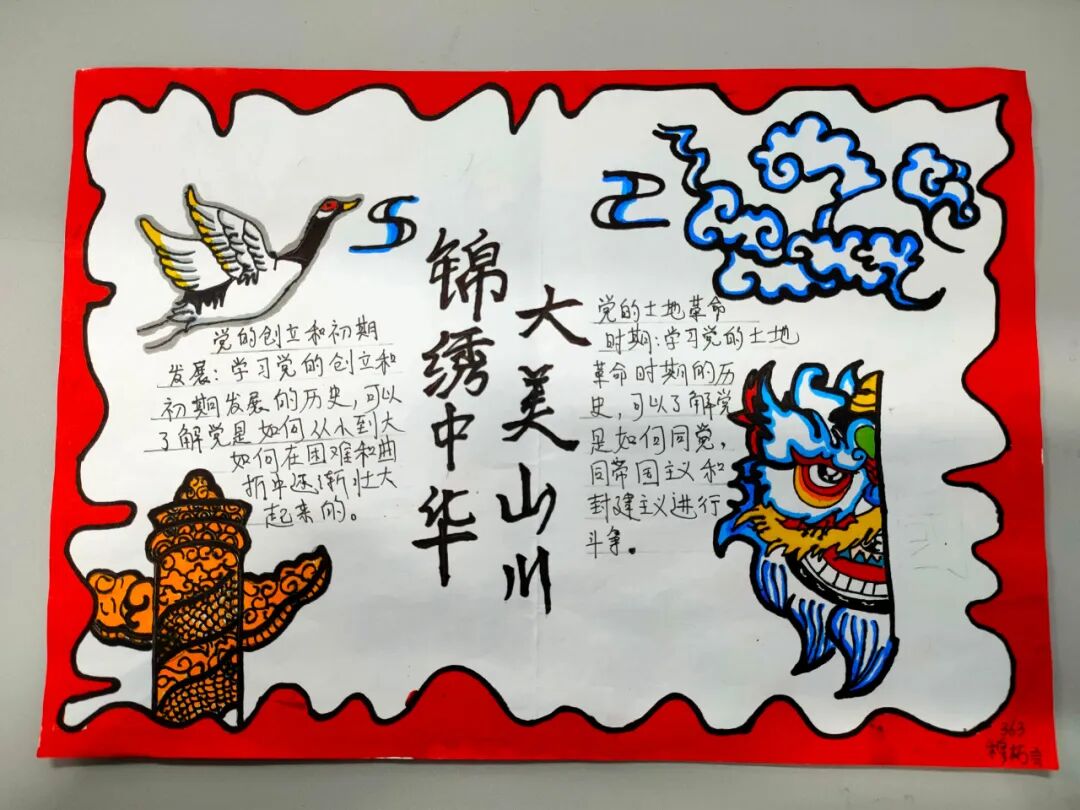 锦绣中华
大美山川
党的创立和初期
发展：学习党的创立和
初期发展的历史，可以
了解党是如何从小到大
如何在困难和曲
折中逐渐壮大
起来的。
党的土地革命
时期：学习党的土地
革命时期的历
史，可以了解党
是如何同党，
同帝国主义和
封建主义进行
斗争。
363